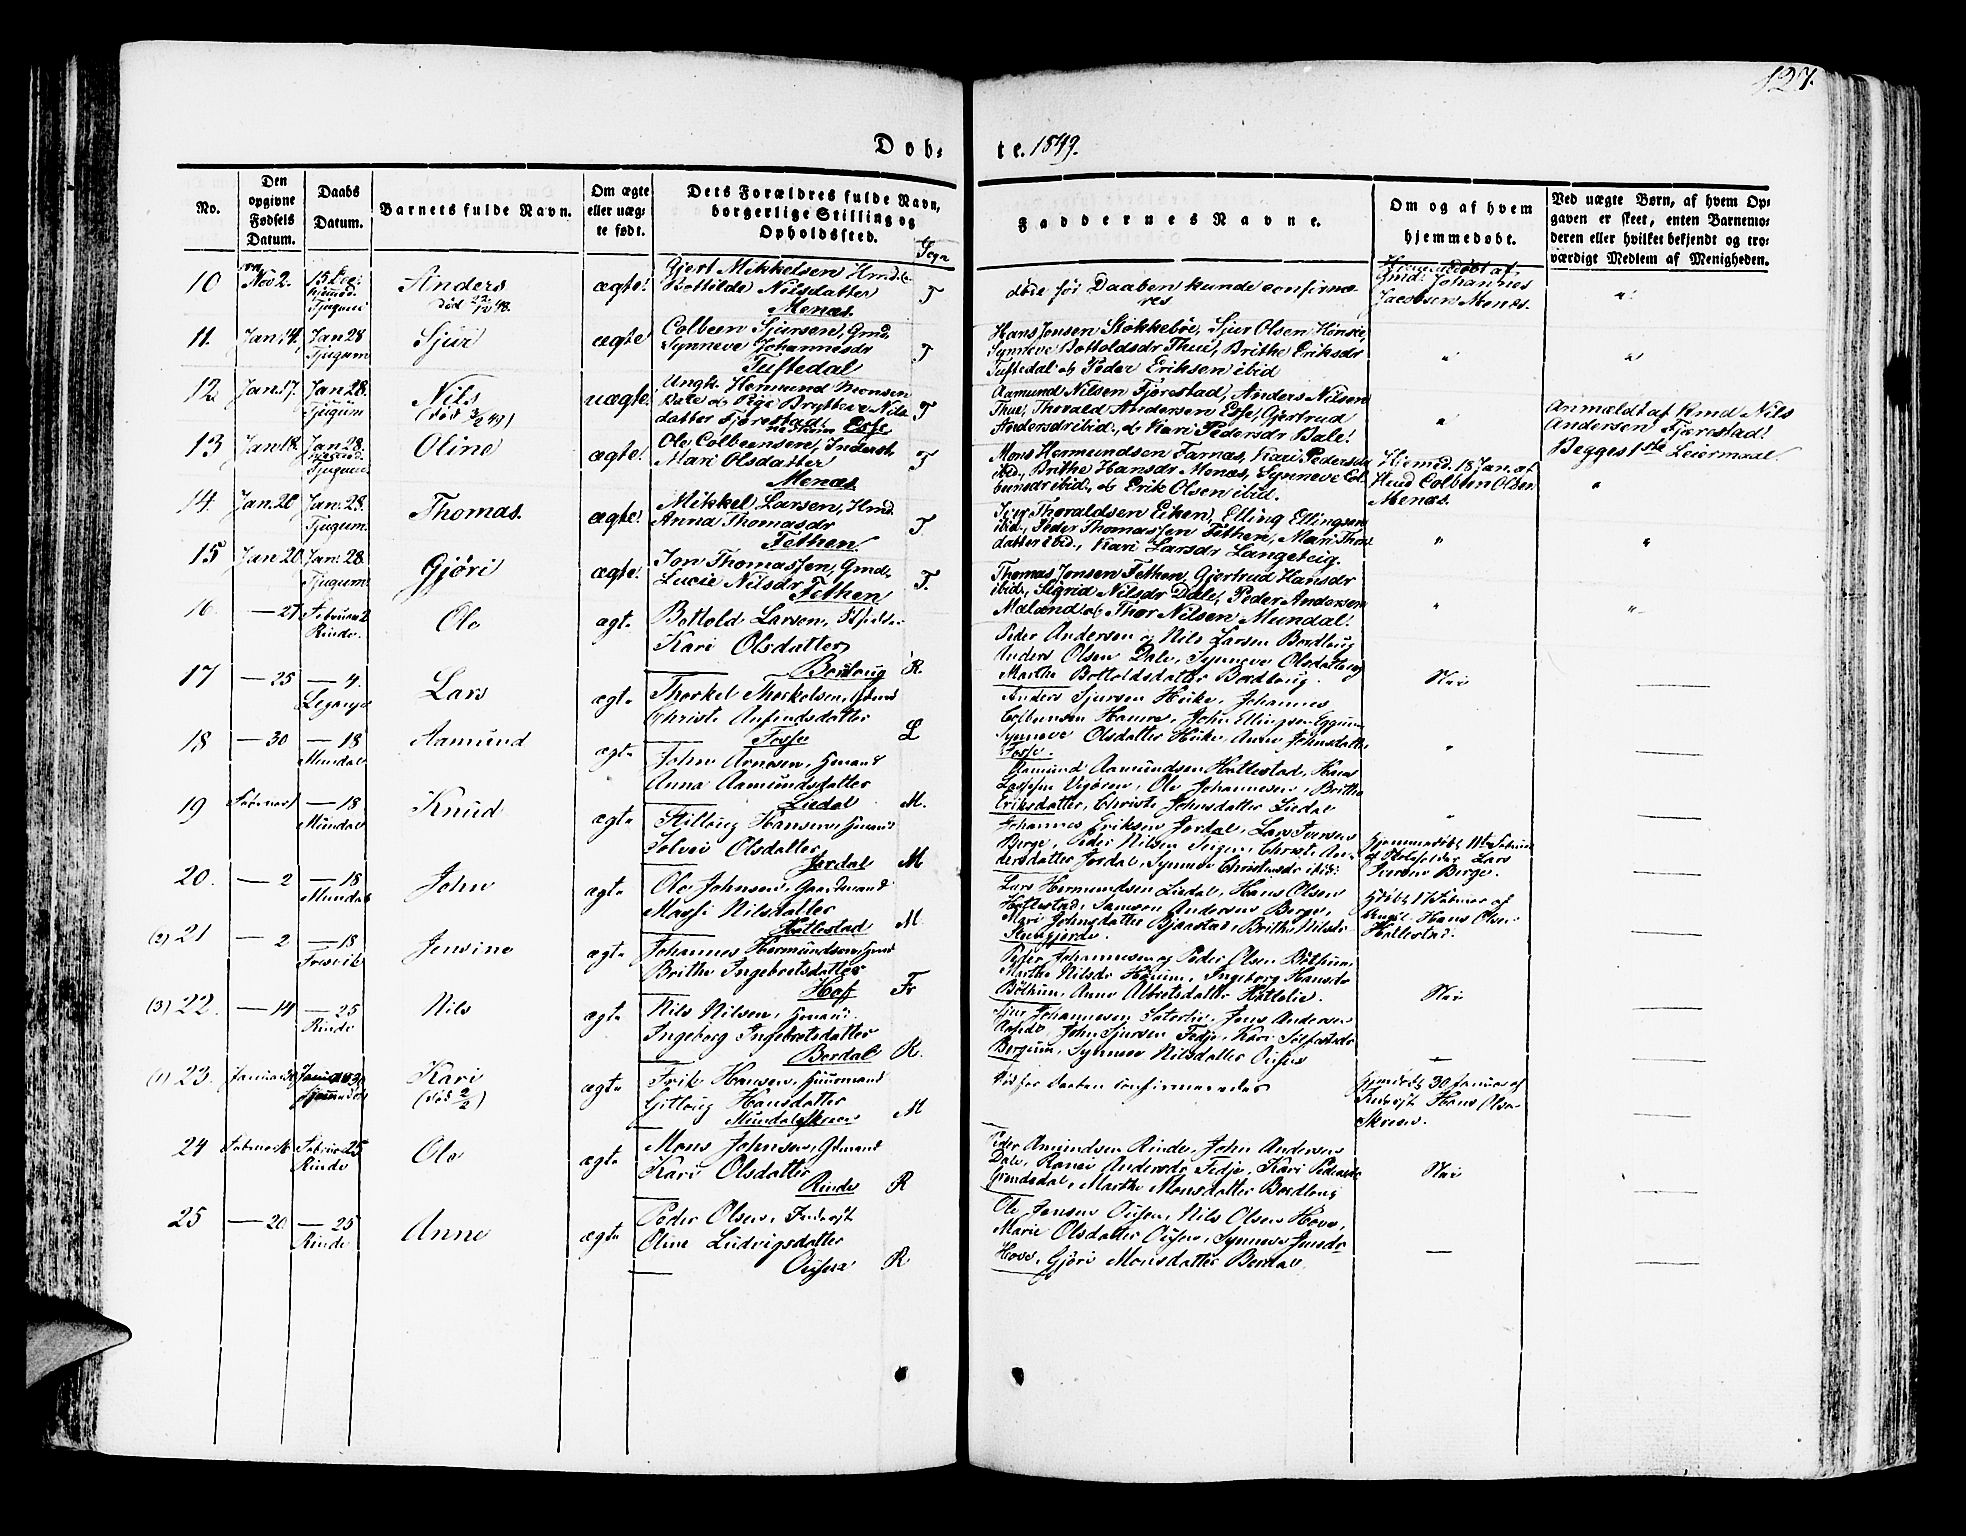 127.
Døb-
te. 1849.
No.
Den opgivne Fødsels Datum.
Daabs Datum.
Barnets fulde Navn.
Om ægte eller uægte født.
Dets Forældres fulde Navn, borgerlige Stilling og Opholdssted.
Sogn
Faddernes Navne.
Om og af hvem hjemmedøbt.
Ved uægte Børn, af hvem Opgaven er skeet, enten Barnemoderen eller hvilket bekjendt og troværdigt Medlem af Menigheden.
10 Nov 2. Anders ægte! Gjert Mikkelsen
Bottilde Nilsdatter
Menæs. T
døde før Daaben kunde confirmeres
Hiemmedøbt af
Gmd. Johannes
Jacobsen Menæs.
11. Jan: 14, Jan 28 Tjugum Sjur ægte Colbeen Sjursen, Gmd.
Synneve Johannesdr
Tuftedal T
Hans Jonsen Stokkebøe, Sjur Olsen Hønsie,
Synneve Bottoldsdr Thue, Brithe Eriksdr
Tuftedal og Peder Eriksen ibid
12 Jan: 17. Jan 28. Tjugum Nils
(død 3/2 49) uægte! Ungk. Hermund Monsen
Dale og Pige Brytteve Nils
datter Fjærestad. Esse T
Aamund Nilsen Fjærestad, Anders Nilsen
Thue, Thorald Andersen Esse, Gjertrud
Andersdr ibid., og Kari Pedersdr Dale!
Anmældt af Kmd Nils
Andersen Fjærestad!
Begges 1ste Leiermaal
13 Jan: 18. Jan 28. Oline ægte! Ole Colbeensen, Inderst.
Mari Olsdatter
Menæs T
Mons Hermundsen Farnæs, Kari Pedersdr
ibid., Brithe Hansdr Menæs, Synneve Col-
bensdr ibid., og Erik Olsen ibid.
Hiemd. 18 Jan. af
Huusd Colbeen Olsen
Menæs.
14. Jan. 20 Jan: 28. Tjugum. Thomas. ægte! Mikkel Larsen, Hmd.
Anna Thomasdr
Fethen T
Iver Thoraldsen Eiken, Elling Ellingsen
ibid., Peder Thomassen Fethen, Mari Thom-
datter ibid., Kari Larsdr Langeteig.
15 Jan 20 Jan: 28. Tjugum Gjøri ægte! Jon Thomassen, Gmd.
Lucie Nilsdr Fethen T.
Thomas Jonsen Fethen, Gjertrud Hansdr
ibid., Sigrid Nilsdr Dale, Peder Andersen
Maland og Thor Nilsen Mundal!
16 — 27 Rinde. Ole ægte Bottold Larsen,
Kari Olsdatter
Bordlaug R
Peder Andersen og Nils Larsen Bordlaug
Anders Olsen Dale, Synneve Olsdatter og
Marthe Bottoldsdatter Bordlaug.
Nei
17 — 25 — 4. Lars ægte Thorkel Thorkelsen,
Christi Anfindsdatter
Fosse L
Anders Sjursen Huke, Johannes
Colbensen Hamre, John Ellingsen Eggum
Synneve Olsdatter Huke, Anne Johnsdatter
Fosse.
18 — 30 — 18 Mundal Aamund ægte John Arnesen, Gmand
Anna Aamundsdatter
Liedal M.
Aamund Aamundsen Hattestad, Hans
Ole Johannesen, Brithe
Eriksdatter, Christi Johnsdatter Liedal
19 — 18 Mundal Knud ægte Hansen, Gmand
Solvei Olsdatter
Jordal M
Johannes Eriksen Jordal, Lars Iversen
Berge, Peder Nilsen Christi An-
dersdatter Jordal, Synneve Christensdr ibid:
Lars
Iversen Berge.
20. — 2 — 18 Mundal John ægte Ole Johnsen, Gaardmand
Massi Nilsdatter
Hattestad M.
Lars Hermundsen Liedal, Hans Olsen
Hattestad, Samson Andersen Berge,
Mari Johnsdatter Bjåstad, Brithe Nilsdr
af
Hans Olsen
Hattestad.
(2) 21 — 2 — 18 Fresvik Jensine ægte Johannes Hermundsen,
Brithe Ingebretsdatter
Hof Fr
Peder Johannesen og Peder Olsen Bøthun,
Marthe Nilsdr Høium, Ingeborg Hansdr
Bøthun, Anne Albretsdatter Hattelie.
Nei
(3) 22. — 14 — 25 Rinde Nils ægte Nils Nilsen, Gmand.
Ingeborg Ingebretsdatter
Berdal R.
Johannesen Jens Andersen
John Sjursen Fedje, Kari
Bergum, Synneve Nilsdatter
(1) 23. Januar 30 Kari
(død 2/2) ægte Erik Hansen,
Gitlaug Hansdatter
Mundalskreen M
Død før Daaben confirmeredes
30 Januar af
Hans Olsen
Skreen.
24 Februar 25 Rinde Ole ægte Mons Johnsen, Gmand
Kari Olsdatter
Rinde R
Peder Amundsen Rinde, John Andersen
Dale, Andersdr Fedje, Kari Pedersdr
Grindsdal, Marthe Monsdatter Bordlaug
Nei
25 — 20 — 25 Rinde Anne ægte Peder Olsen, Inderst
Oline Ludvigsdatter
R
Ole Jensen Nils Olsen Hove,
Marie Olsdatter Synneve Jensdr
Hove, Gjøri Monsdatter Berdal.